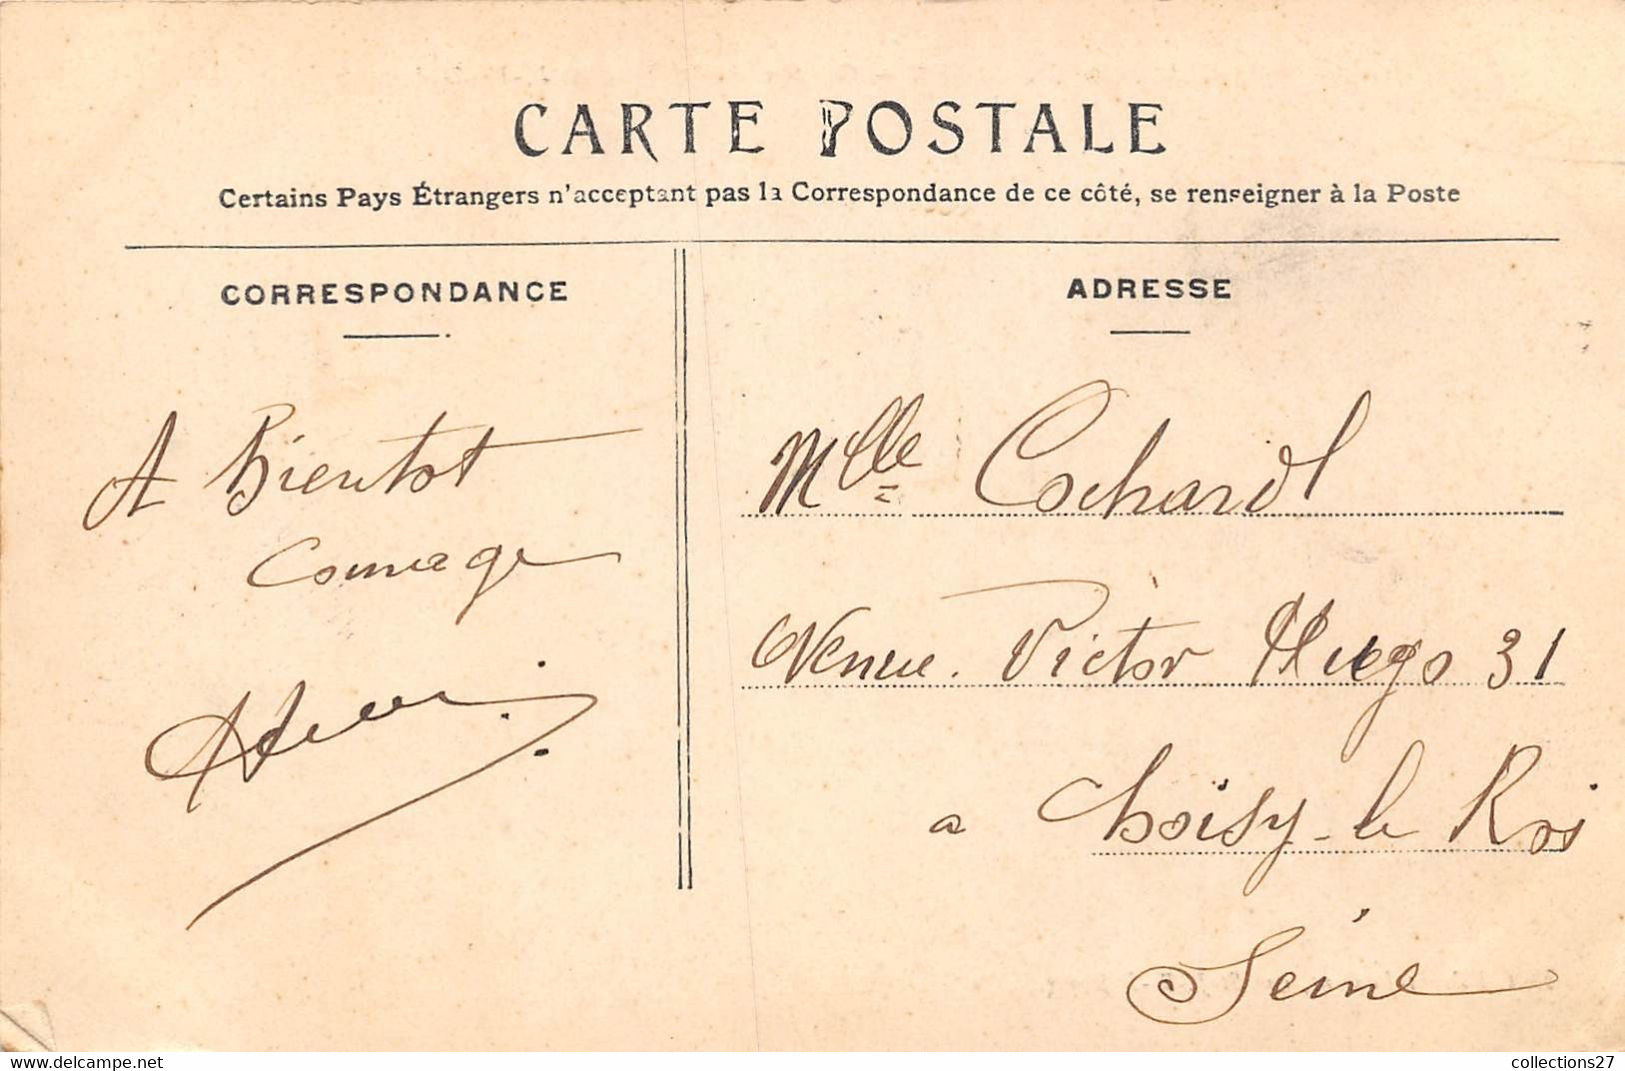 CARTE POSTALE
Certains Pays Étrangers n'acceptant pas la Correspondance de ce côté, se renseigner à la Poste
CORRESPONDANCE
A Bientot
Courage
ADRESSE
Mlle Cochard
Avenue. Victor Hugo 31
a Choisy-le Roi
Seine
delcampe.net
collections27